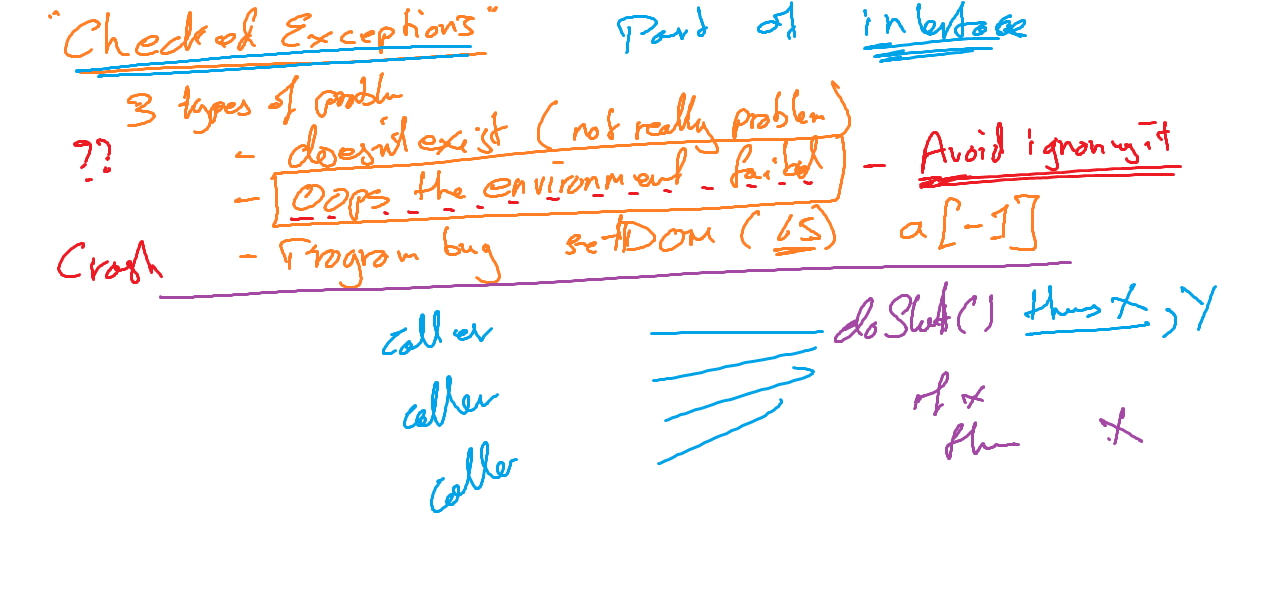 "Checked Exceptions" Part of interface
3 types of problem
?? - doesn't exist (not really problem)
- Oops the environment failed - Avoid ignoring it
Crash - Program bug setDOM (45) a[-1]
caller doStuff() throws X, Y
caller if x
throw X
caller